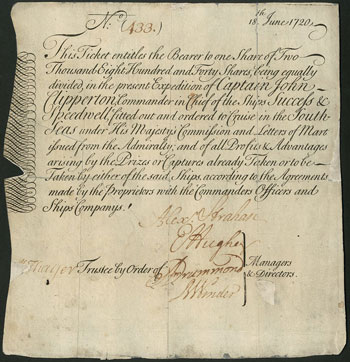 No (433.) 18th June 1720
This Ticket entitles the Bearer to one Share of Two
Thousand Eight Hundred and Forty Shares, being equally
divided, in the present Expedition of Captain John
Clipperton, Commander in Chief of the Ships Success &
Speedwell, fitted out and ordered to Cruise in the South-
Seas under His Majesty's Commission and Letters of Mart
issued from the Admiralty, and of all Profits & Advantages
arising by the Prizes or Captures already Taken or to be
Taken by either of the said Ships, according to the Agreements
made by the Proprietors with the Commanders Officers and
Ships Companys.
Hughes
Trustee by Order of Drummond Managers
& Directors.
Winder